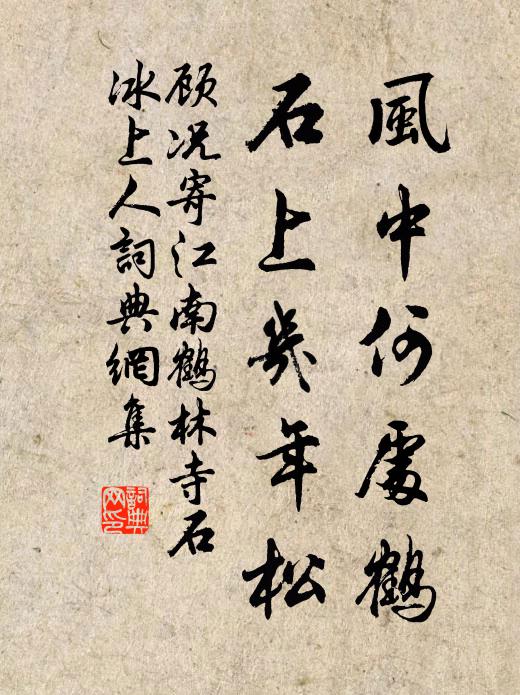 風中何處鶴
石上幾年松
顾况寄江南鶴林寺石
冰上人詞典網集
詞典网印